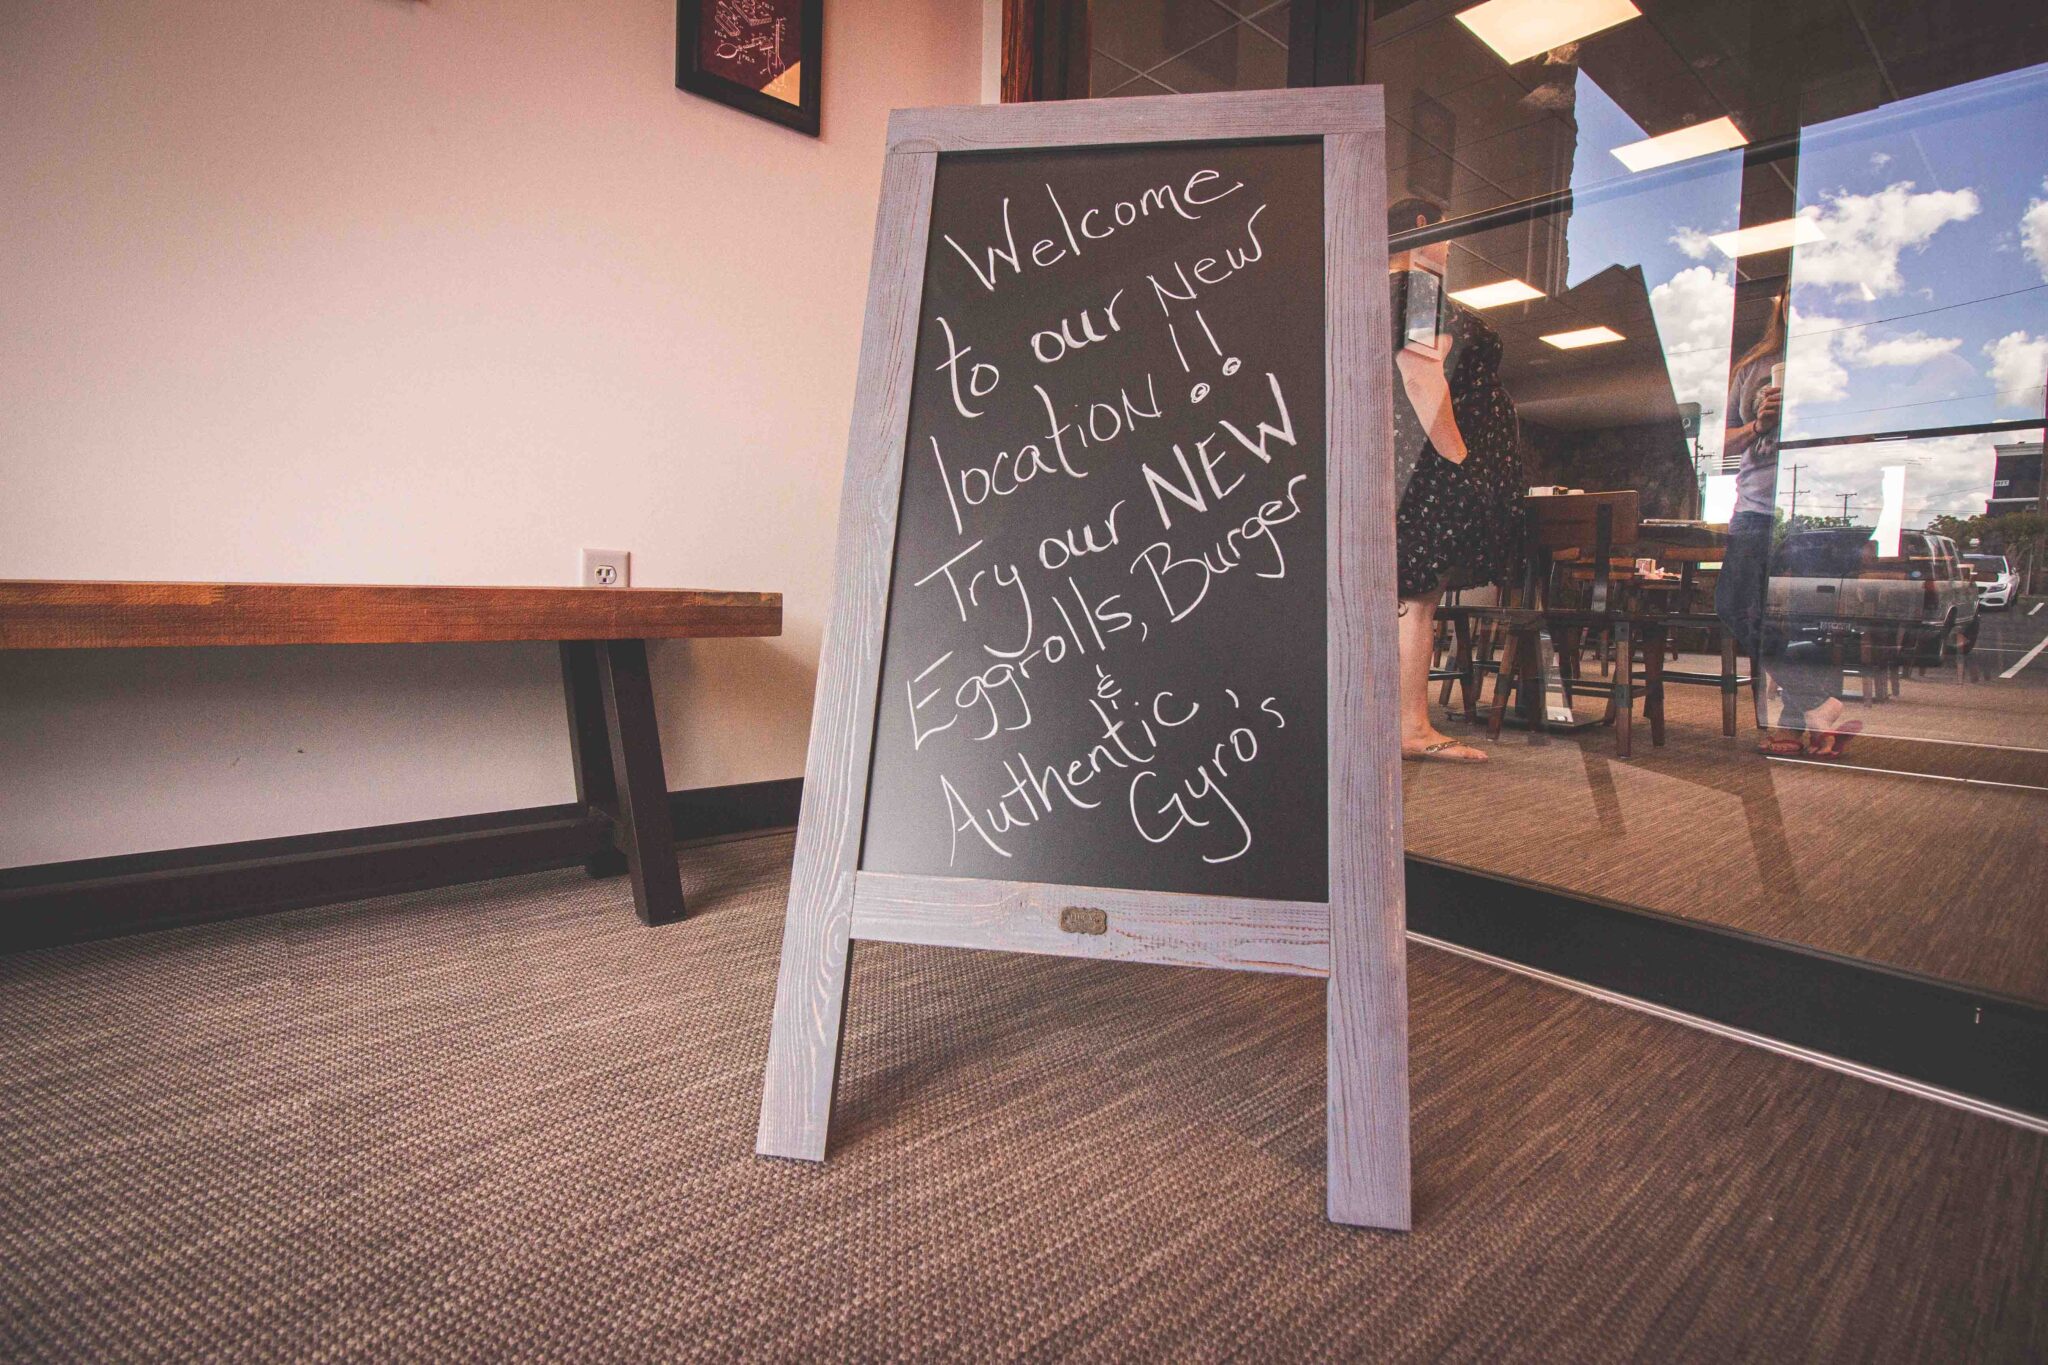 Welcome
to our New
location!!
Try our NEW
Eggrolls, Burger
&
Authentic
Gyro's